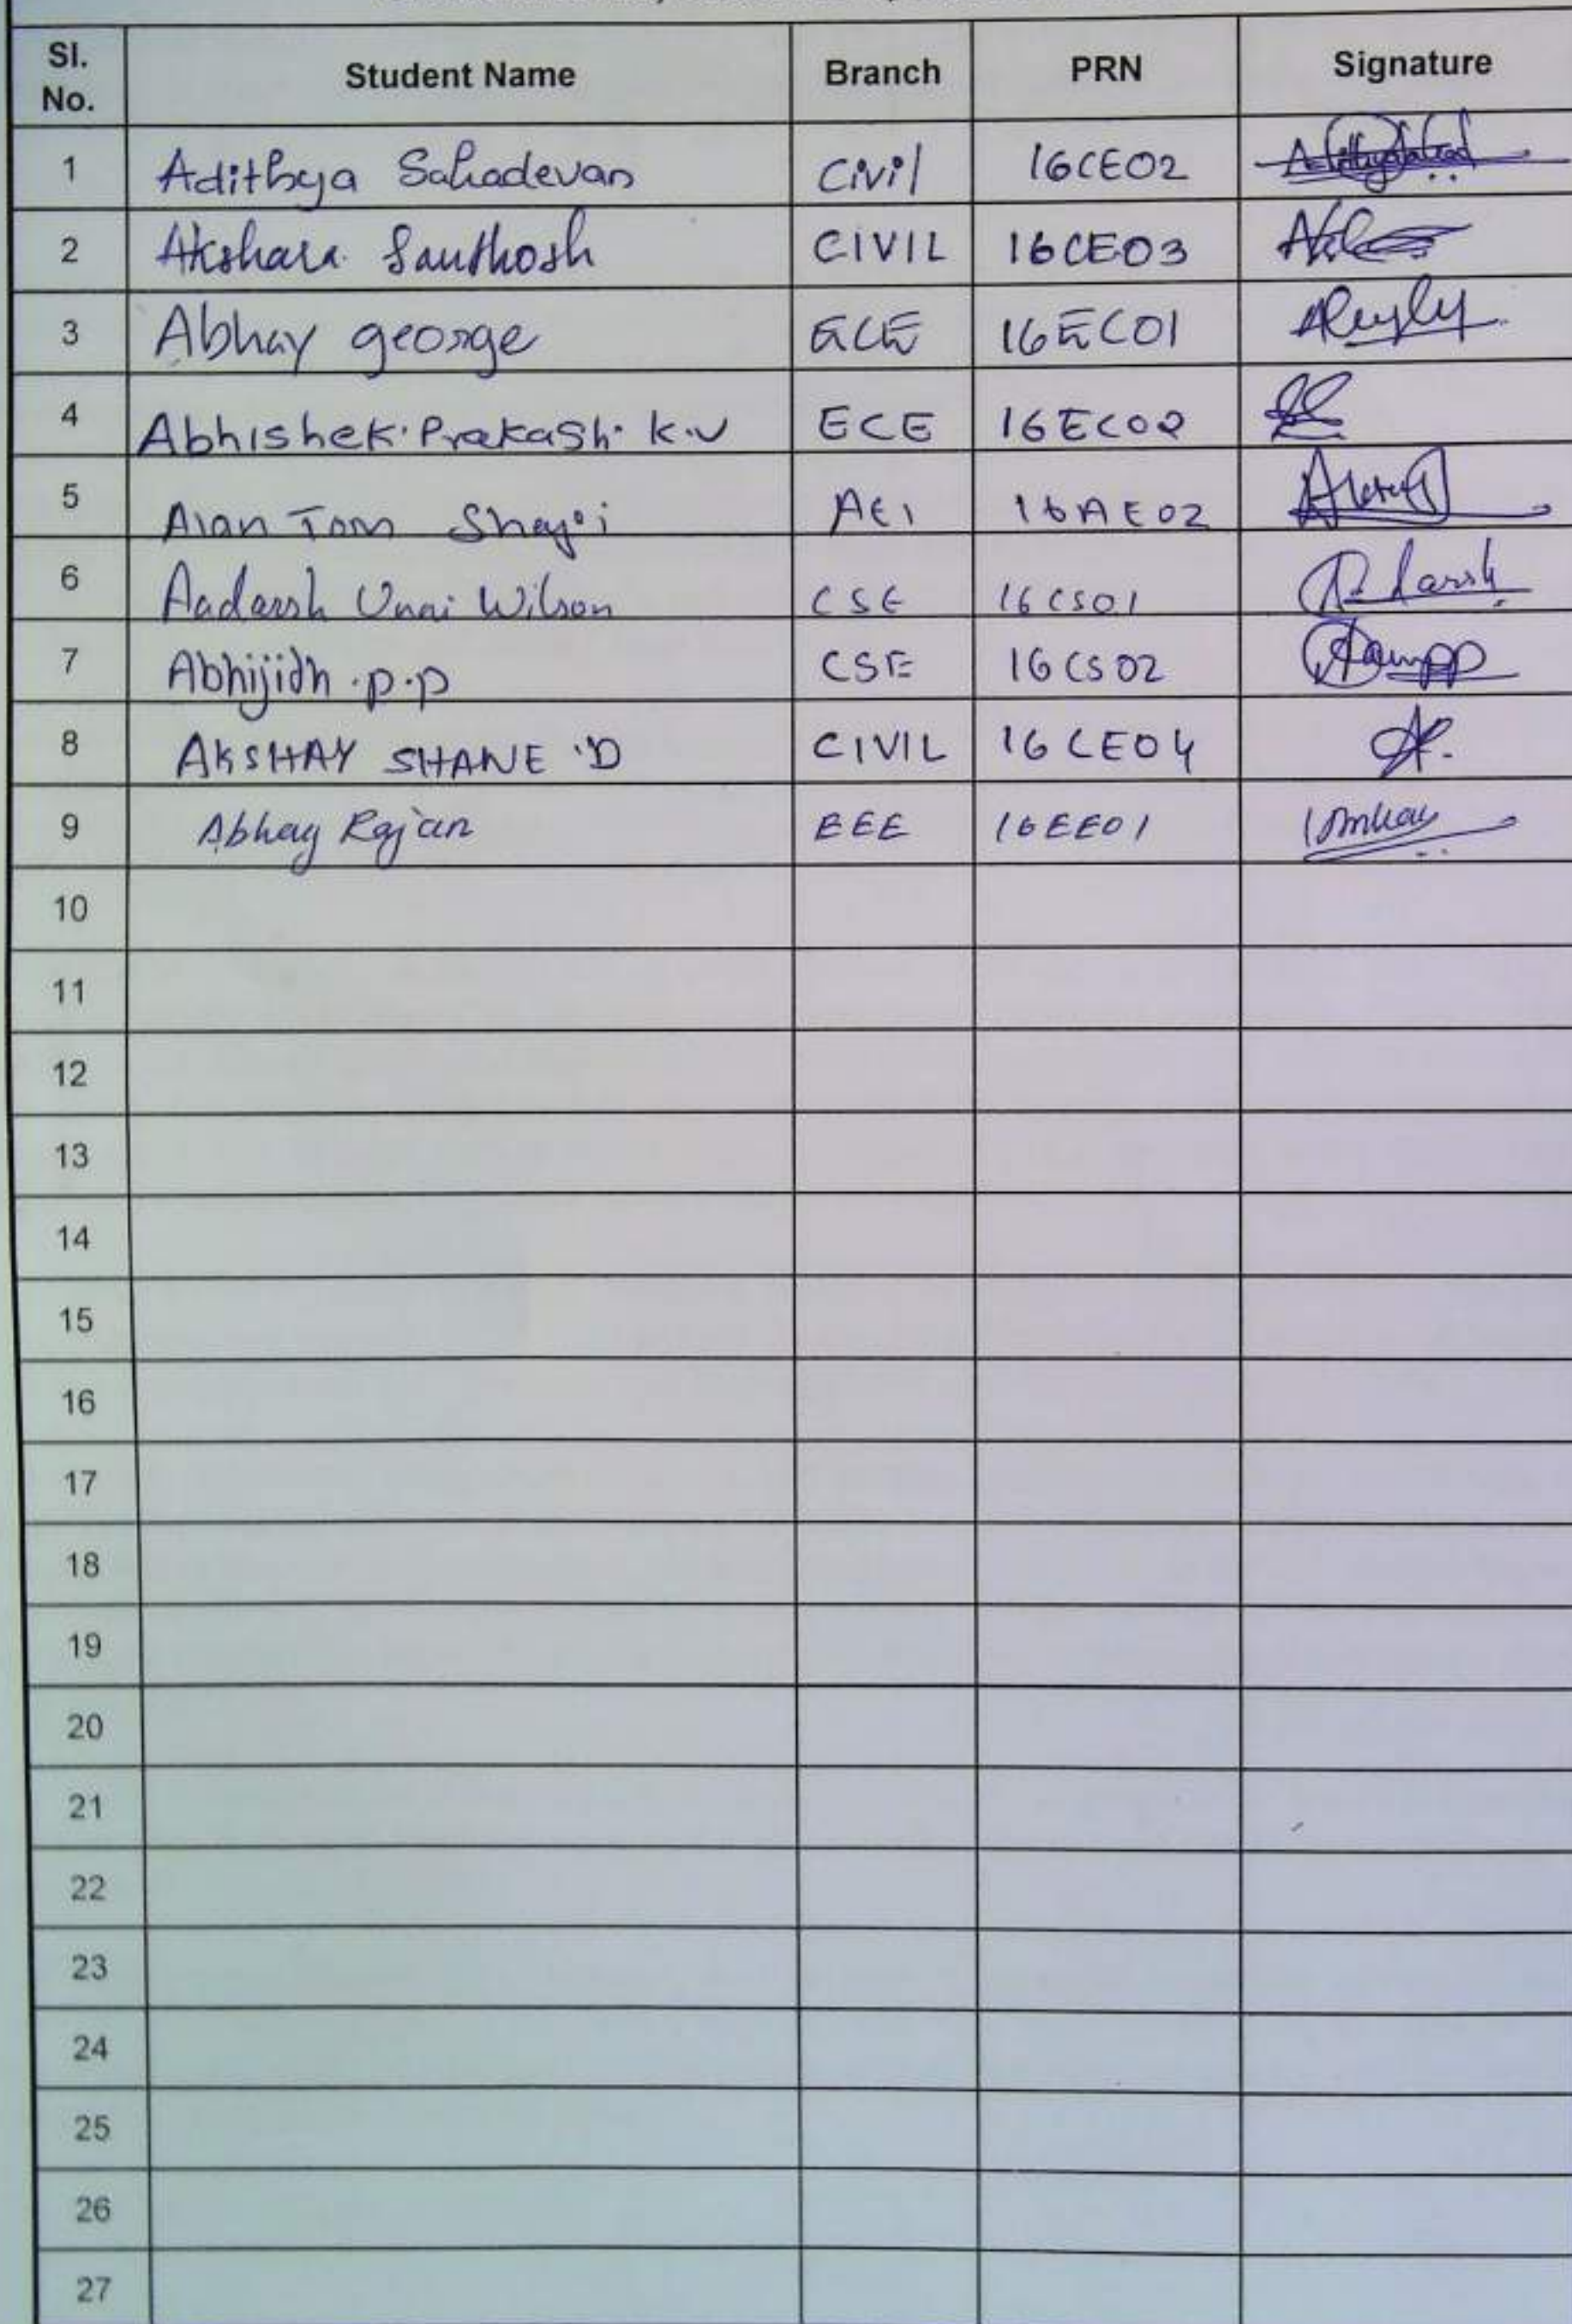 Sl. No. Student Name Branch PRN Signature
1 Adithya Sahadevan Civil 16CE02
2 Akshara Santhosh CIVIL 16CE03
3 Abhay george ECE 16EC01
4 Abhishek. Prakash. k.v ECE 16EC02
5 Alan Tom Shaji AEI 16AE02
6 Aadarsh Unni Wilson CSE 16CS01 Adarsh
7 Abhijidh .p.p CSE 16CS02
8 AKSHAY SHANE .D CIVIL 16CE04
9 Abhay Rajan EEE 16EE01
10
11
12
13
14
15
16
17
18
19
20
21
22
23
24
25
26
27